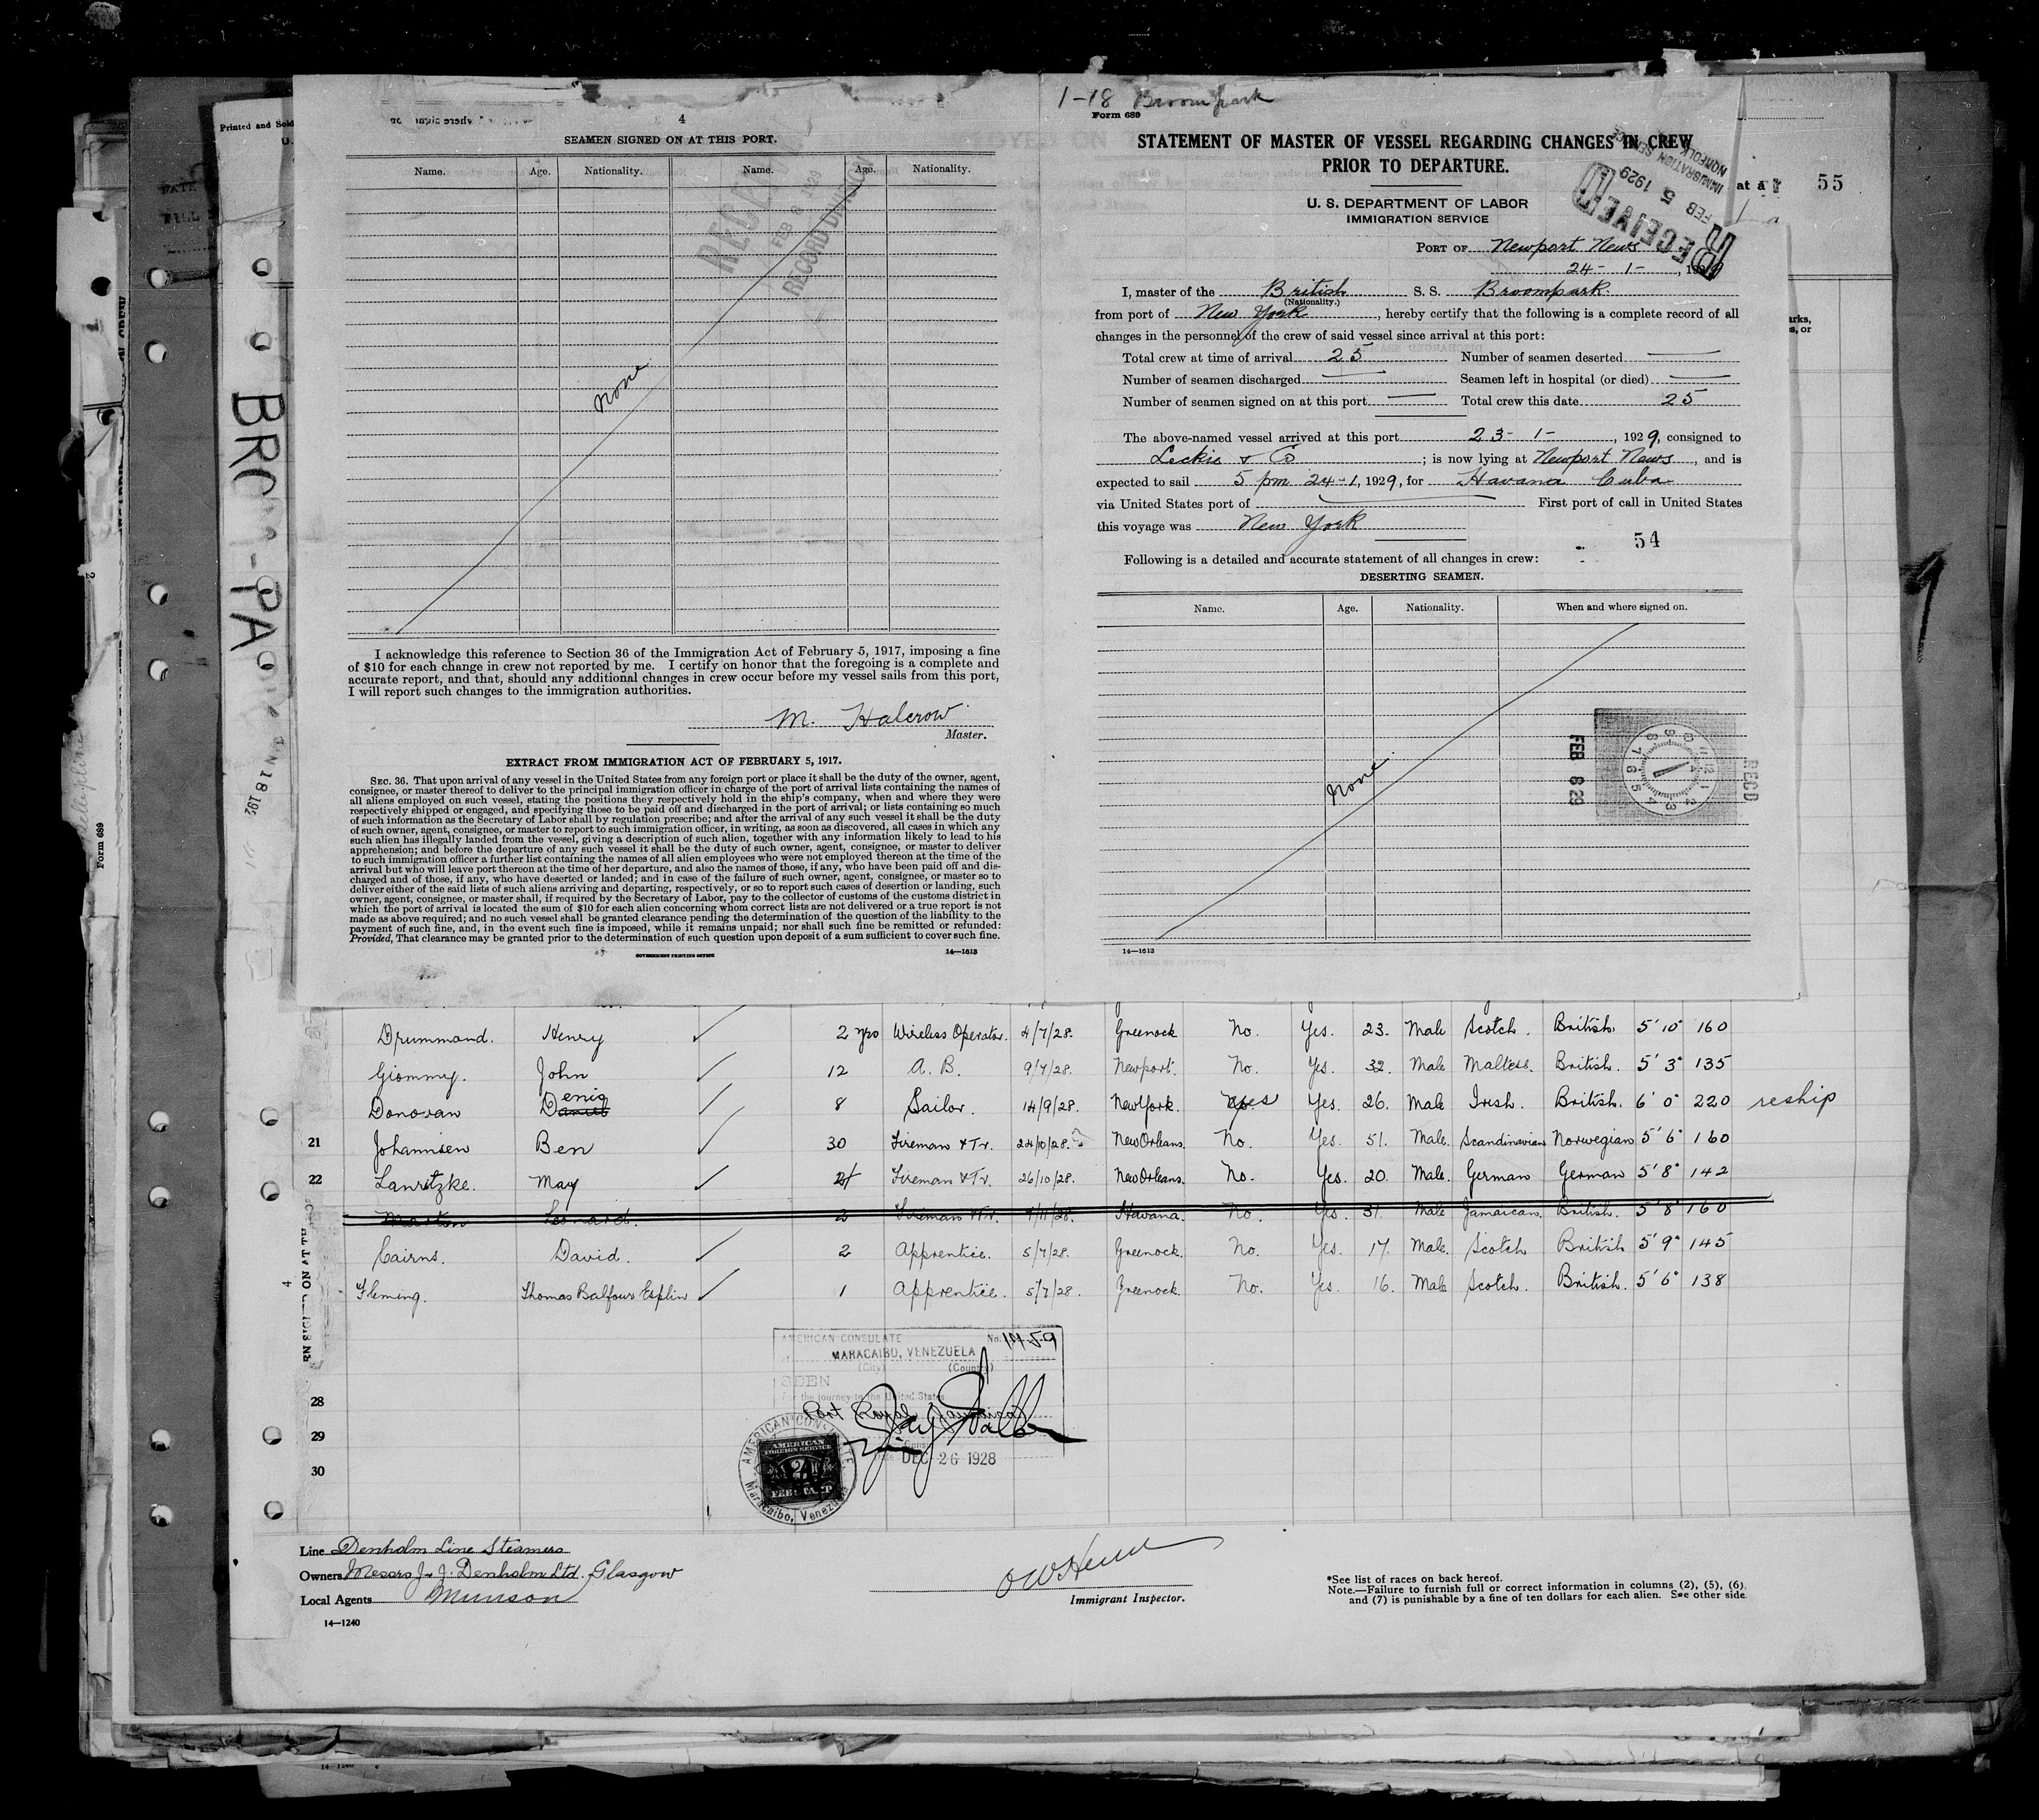 1-18 Broompark
Printed and Sold
4
SEAMEN SIGNED ON AT THIS PORT.
Name. Age. Nationality. Name. Age. Nationality.
RECORD DIVISION
none
I acknowledge this reference to Section 36 of the Immigration Act of February 5, 1917, imposing a fine
of $10 for each change in crew not reported by me. I certify on honor that the foregoing is a complete and
accurate report, and that, should any additional changes in crew occur before my vessel sails from this port,
I will report such changes to the immigration authorities.
M. Halcrow
Master.
EXTRACT FROM IMMIGRATION ACT OF FEBRUARY 5, 1917.
SEC. 36. That upon arrival of any vessel in the United States from any foreign port or place it shall be the duty of the owner, agent,
consignee, or master thereof to deliver to the principal immigration officer in charge of the port of arrival lists containing the names of
all aliens employed on such vessel, stating the positions they respectively hold in the ship's company, when and where they were
respectively shipped or engaged, and specifying those to be paid off and discharged in the port of arrival; or lists containing so much
of such information as the Secretary of Labor shall by regulation prescribe; and after the arrival of any such vessel it shall be the duty
of such owner, agent, consignee, or master to report to such immigration officer, in writing, as soon as discovered, all cases in which any
such alien has illegally landed from the vessel, giving a description of such alien, together with any information likely to lead to his
apprehension; and before the departure of any such vessel it shall be the duty of such owner, agent, consignee, or master to deliver
to such immigration officer a further list containing the names of all alien employees who were not employed thereon at the time of the
arrival but who will leave port thereon at the time of her departure, and also the names of those, if any, who have been paid off and dis-
charged and of those, if any, who have deserted or landed; and in case of the failure of such owner, agent, consignee, or master so to
deliver either of the said lists of such aliens arriving and departing, respectively, or so to report such cases of desertion or landing, such
owner, agent, consignee, or master shall, if required by the Secretary of Labor, pay to the collector of customs of the customs district in
which the port of arrival is located the sum of $10 for each alien concerning whom correct lists are not delivered or a true report is not
made as above required; and no such vessel shall be granted clearance pending the determination of the question of the liability to the
payment of such fine, and, in the event such fine is imposed, while it remains unpaid; nor shall such fine be remitted or refunded:
Provided, That clearance may be granted prior to the determination of such question upon deposit of a sum sufficient to cover such fine.
GOVERNMENT PRINTING OFFICE 14—1613
Form 689
STATEMENT OF MASTER OF VESSEL REGARDING CHANGES IN CREW
PRIOR TO DEPARTURE.
U. S. DEPARTMENT OF LABOR
IMMIGRATION SERVICE
RECEIVED
FEB 5 1929
IMMIGRATION SERVICE
NORFOLK
at a 55
PORT OF Newport News
24- 1- , 1929
I, master of the British S. S. Broompark.
(Nationality.)
from port of New York, hereby certify that the following is a complete record of all
changes in the personnel of the crew of said vessel since arrival at this port:
Total crew at time of arrival 25 Number of seamen deserted —
Number of seamen discharged — Seamen left in hospital (or died) —
Number of seamen signed on at this port — Total crew this date 25
The above-named vessel arrived at this port 23- 1- , 1929, consigned to
Leckie & Co ; is now lying at Newport News, and is
expected to sail 5 pm 24-1, 1929, for Havana Cuba
via United States port of — First port of call in United States
this voyage was New York
54
Following is a detailed and accurate statement of all changes in crew:
DESERTING SEAMEN.
Name. Age. Nationality. When and where signed on.
none
FEB 8 29
RECD
14—1613
Form 689
Drummand. Henry 2 yrs Wireless Operator. 4/7/28. Greenock No. Yes. 23. Male Scotch. British. 5' 10" 160
Giommy. John 12 A. B. 9/7/28. Newport. No. Yes. 32. Male Maltese. British. 5' 3" 135
Donovan Denis 8 Sailor. 14/9/28. New York. yes Yes. 26. Male Irish. British. 6' 0" 220 reship
21 Johannsen Ben 30 Fireman & Tr. 24/10/28. New Orleans. No. Yes. 51. Male. Scandinavian Norwegian 5' 6" 160
22 Lanritzke. May Fireman & Tr. 26/10/28. New Orleans. No. Yes. 20. Male. German German 5' 8" 142
Morton Leonard. 2 Fireman & Tr. Havana. No. Yes. 31. Male Jamaican. British. 5' 8" 160
Cairns. David. 2 Apprentice. 5/7/28. Greenock. No. Yes. 17. Male. Scotch British 5' 9" 145
Fleming. Thomas Balfour Esplin 1 Apprentice. 5/7/28. Greenock. No. Yes. 16. Male Scotch. British. 5' 6" 138
28
29
30
AMERICAN CONSULATE No. 1459
MARACAIBO, VENEZUELA
(City) (Country)
SEEN
For the journey to the United States
Port Royal Jamaica
DEC 26 1928
AMERICAN CONSULATE
Maracaibo, Venezuela
AMERICAN
FOREIGN SERVICE
FEE STAMP
Line Denholm Line Steamers
Owners Messrs J. & J. Denholm Ltd. Glasgow
Local Agents Munson
14—1240
Immigrant Inspector.
*See list of races on back hereof.
Note.—Failure to furnish full or correct information in columns (2), (5), (6)
and (7) is punishable by a fine of ten dollars for each alien. See other side